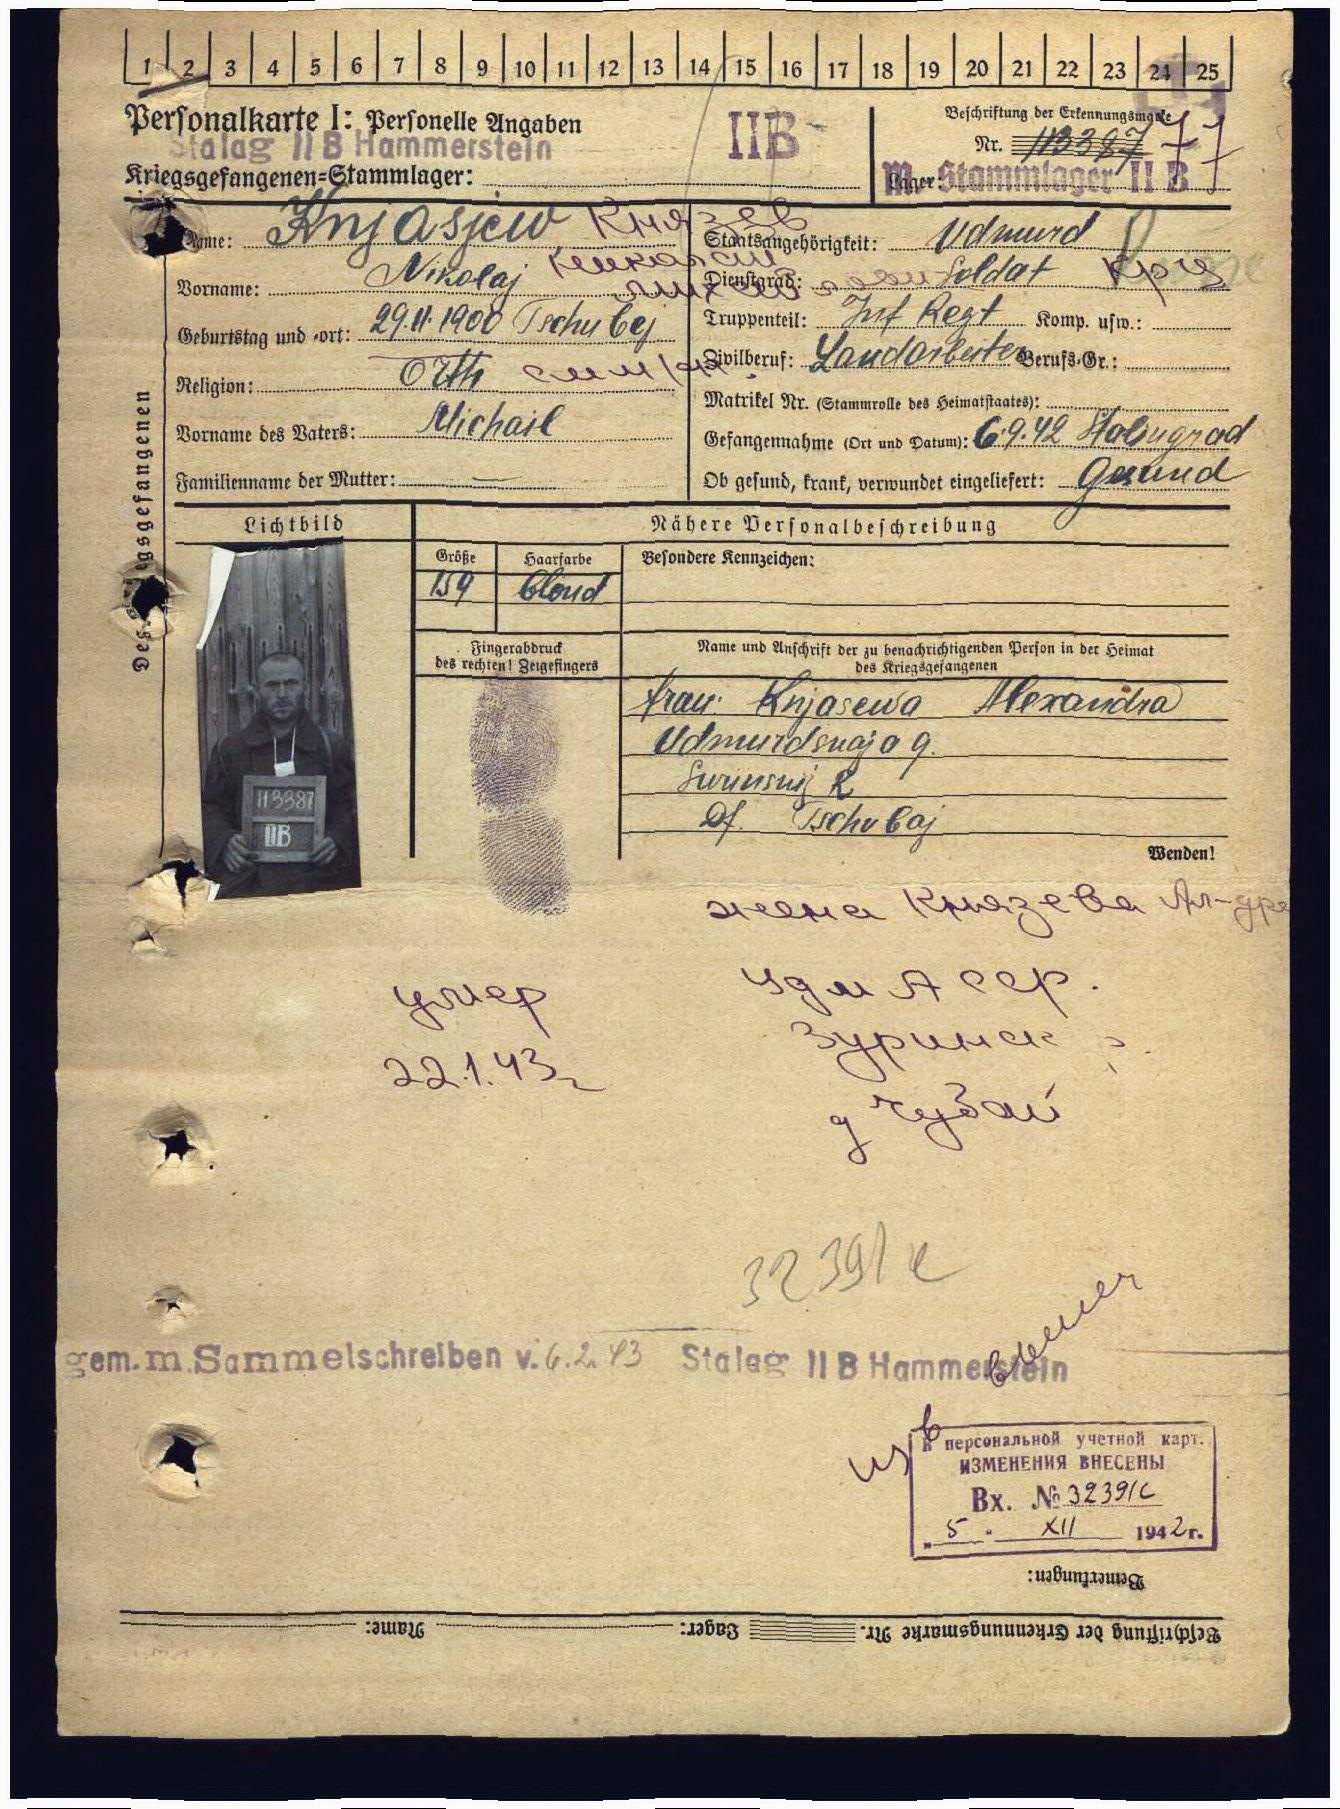 1 2 3 4 5 6 7 8 9 10 11 12 13 14 15 16 17 18 19 20 21 22 23 24 25
Personalkarte I: Personelle Angaben
Stalag II B Hammerstein
Kriegsgefangenen-Stammlager:
IIB
Beschriftung der Erkennungsmarke
Nr. 113387
Lager M. Stammlager II B
Des Kriegsgefangenen
Name: Knjasjew Князев
Vorname: Nikolaj Николай
Geburtstag und -ort: 29.11.1900 Tschubej
Religion: Orth
Vorname des Vaters: Michail
Familienname der Mutter: —
Staatsangehörigkeit: Udmurd
Dienstgrad: Soldat
Truppenteil: Inf Regt Komp. usw.:
Zivilberuf: Landarbeiter Berufs-Gr.:
Matrikel Nr. (Stammrolle des Heimatstaates):
Gefangennahme (Ort und Datum): 6.9.42 Stalingrad
Ob gesund, krank, verwundet eingeliefert: Gesund
Lichtbild
Nähere Personalbeschreibung
Größe
159
Haarfarbe
blond
Besondere Kennzeichen:
Fingerabdruck
des rechten! Zeigefingers
Name und Anschrift der zu benachrichtigenden Person in der Heimat
des Kriegsgefangenen
113387
IIB
Frau: Knjasewa Alexandra
Udmurdskaja g.
Surinskij R
Df. Tschubaj
Wenden!
жена Князева Ал-дра
Удм АССР.
Зуринск р.
д Чубай
умер
22.1.43г
32391с
gem. m. Sammelschreiben v. 6.2.43 Stalag II B Hammerstein
В персональной учетной карт.
ИЗМЕНЕНИЯ ВНЕСЕНЫ
Вх. № 32391с
„5" XII 1942г.
Bemerkungen:
Beschriftung der Erkennungsmarke Nr. Lager: Name: